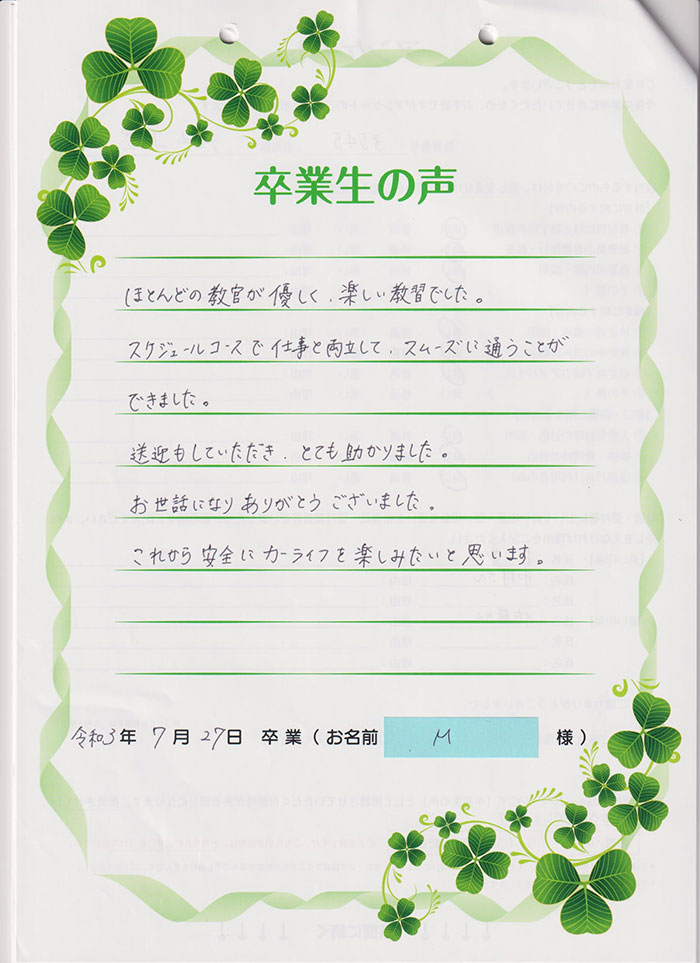 卒業生の声
ほとんどの教官が優しく、楽しい教習でした。
スケジュールコースで仕事と両立して、スムーズに通うことが
できました。
送迎もしていただき、とても助かりました。
お世話になりありがとうございました。
これから安全にカーライフを楽しみたいと思います。
令和3年 7月27日 卒業(お名前 M 様)